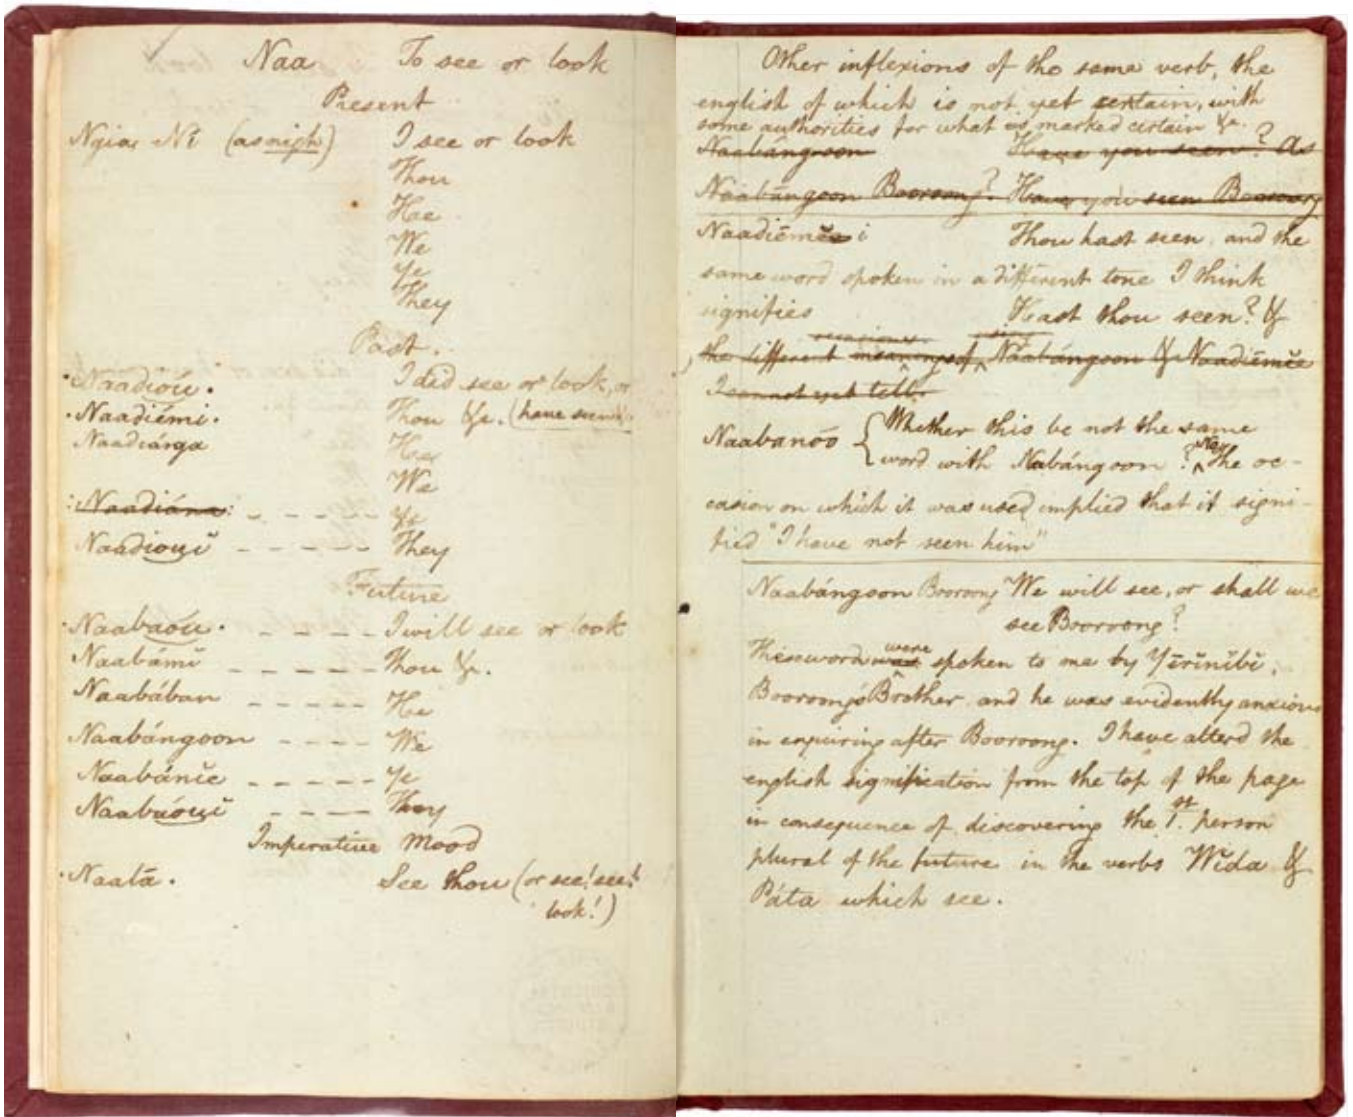 Naa To see or look
Present
Ngia Ni (as nigh) I see or look
Thou
He
We
Ye
They
Past.
Naadioú. I did see or look, or
Naadiémi. Thou &c. (have seen)
Naadiárga He
We
Naadiána Ye
Naadiouyĭ They
Future
Naabaóu. I will see or look
Naabámĭ Thou &c.
Naabában He
Naabángoon We
Naabánĭe Ye
Naabaóuyĭ They
Imperative Mood
Naalā. See thou (or see! see!
look!)
Other inflexions of the same verb, the
english of which is not yet certain, with
some authorities for what is marked certain &c.
Naabángoon Have you seen? As
Naabángoon Booroong? Have you seen Booroong
Naadiēmĭ Thou hast seen, and the
same word spoken in a different tone I think
signifies Hast thou seen? &
the different meanings of Naabángoon & Naadiēmĭe
I cannot yet tell.
Naabanóo { Whether this be not the same
word with Nabángoon? No The oc-
casion on which it was used implied that it signi-
fied "I have not seen him"
Naabángoon Booroong We will see, or shall we
see Booroong?
These word were spoken to me by Yērĭnĭbĭ,
Booroong's Brother and he was evidently anxious
in enquiring after Booroong. I have alterd the
english signification from the top of the page
in consequence of discovering the 1.st person
plural of the future in the verbs Wĭda &
Páta which see.